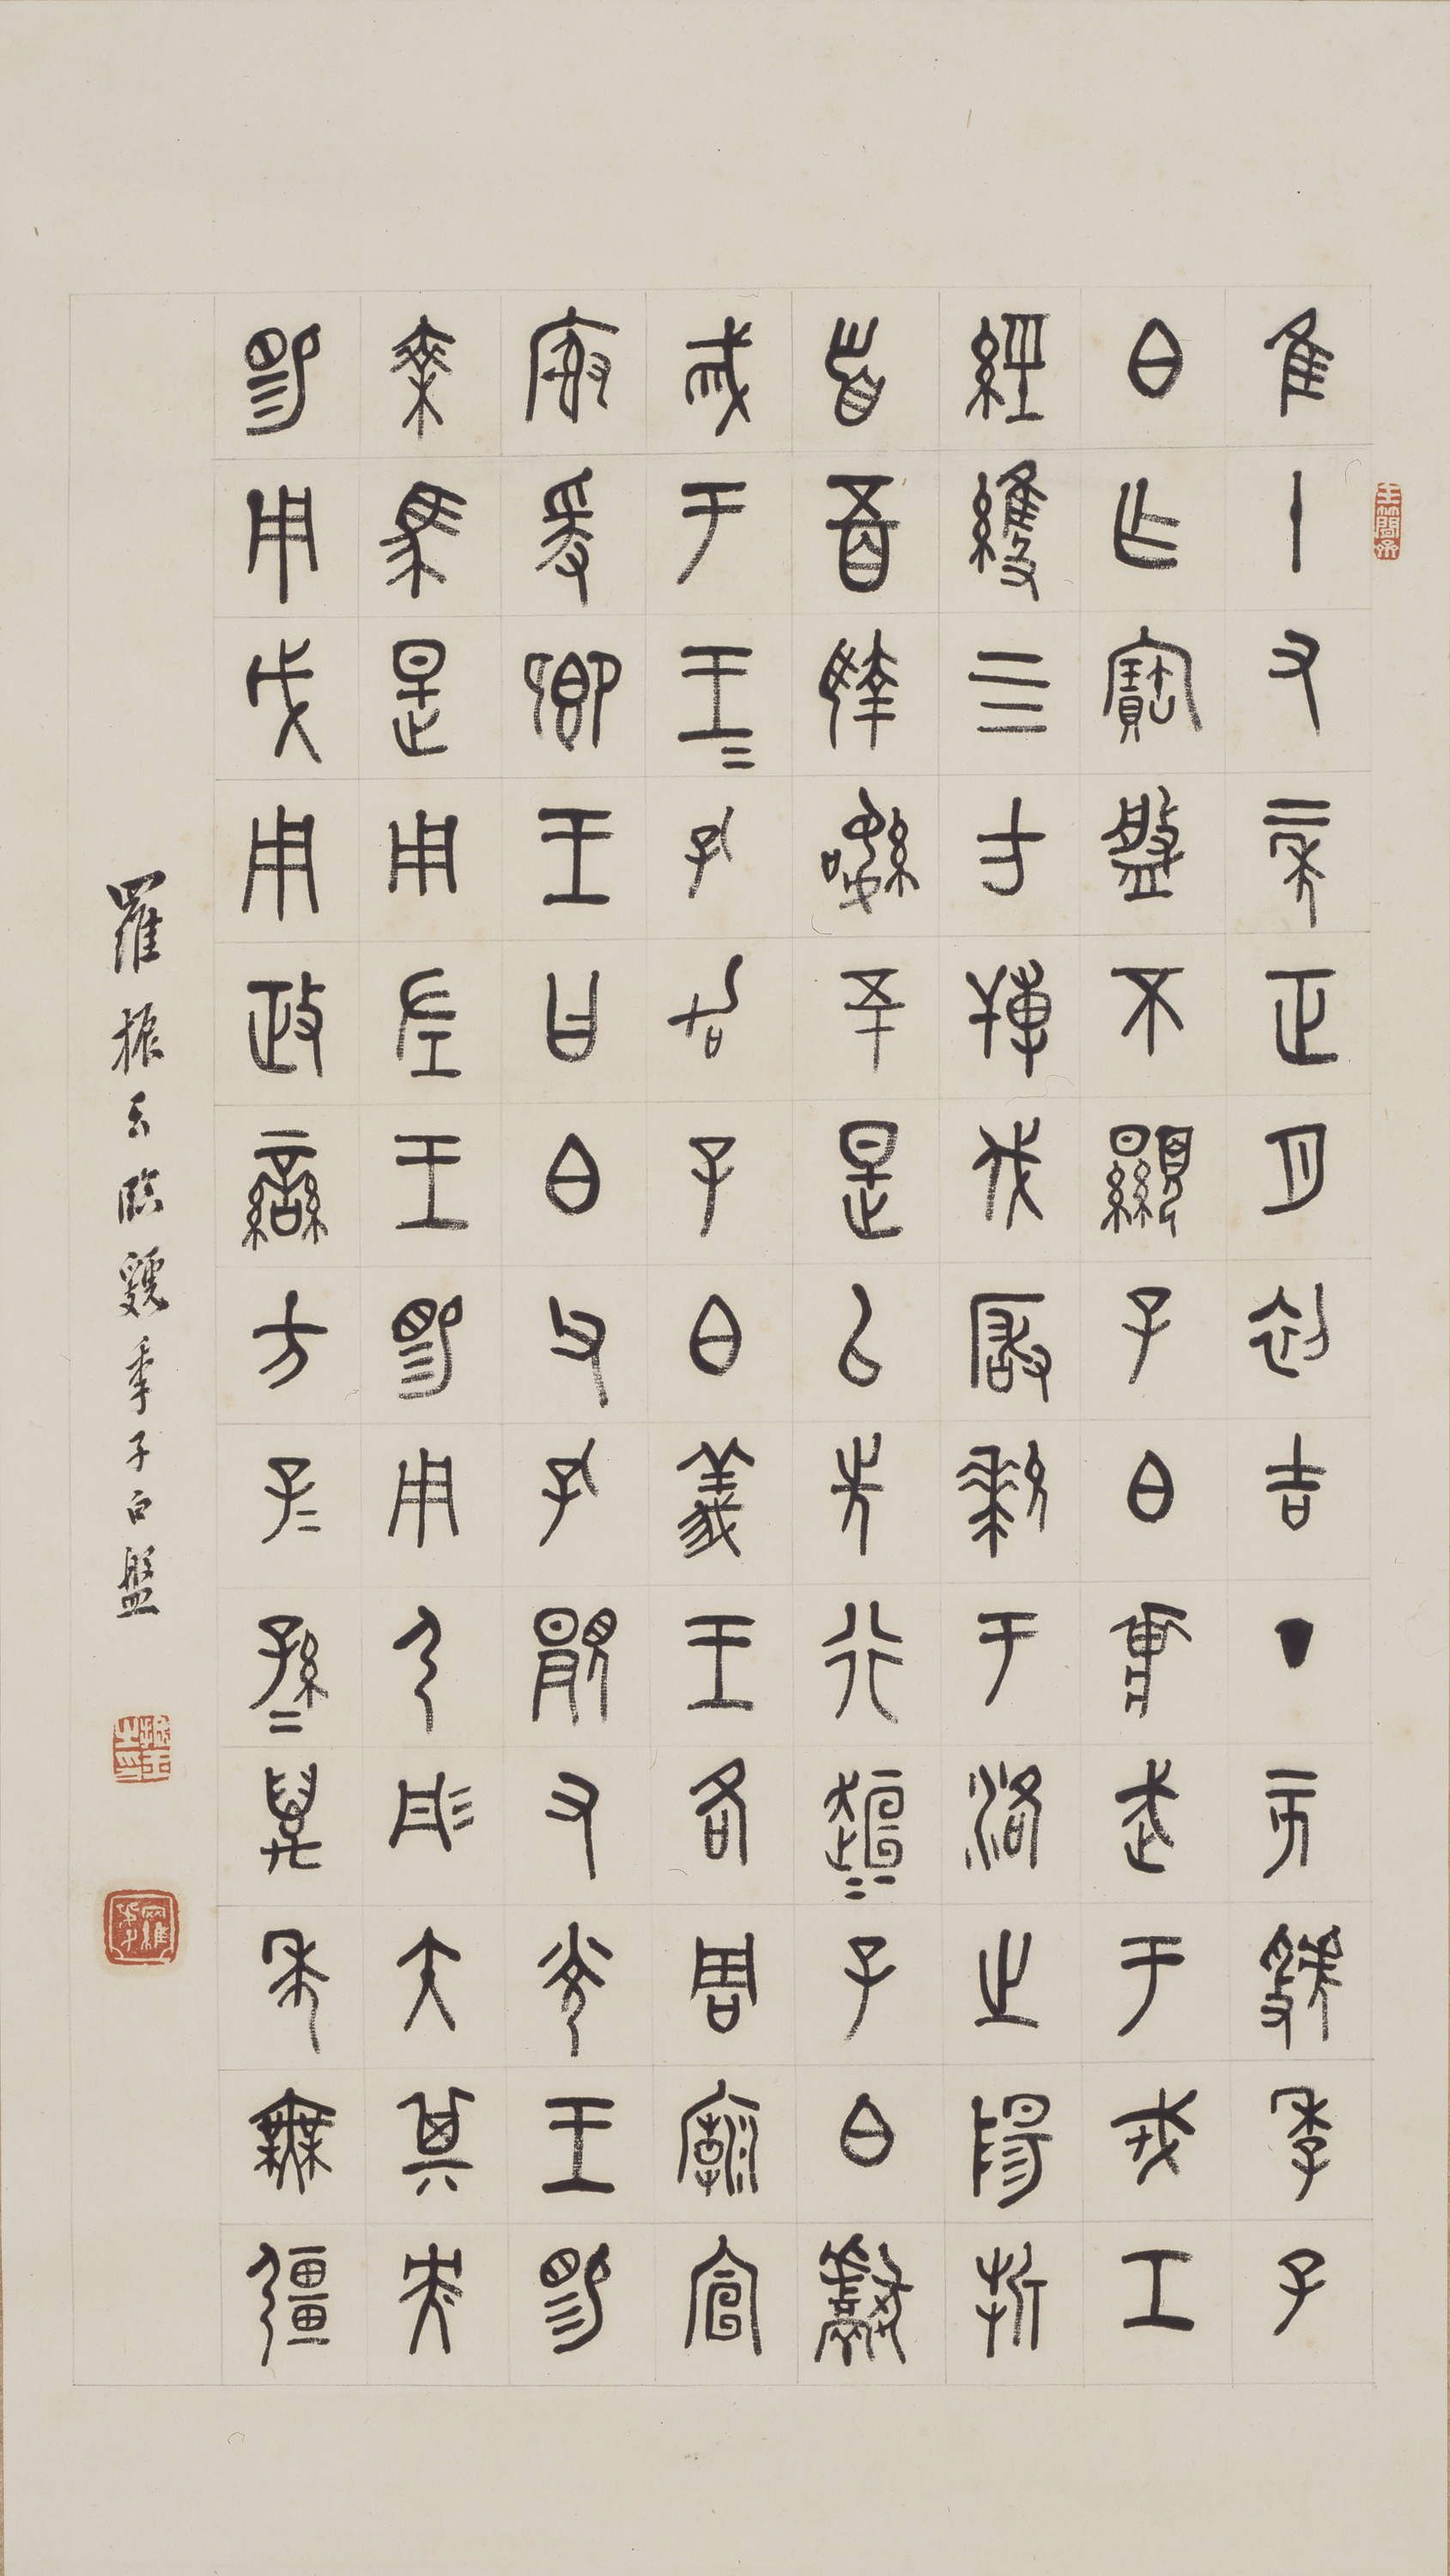 玉簡齋
隹十又二年正月初吉丁亥虢季子
白乍寶盤不顯子白壯武于戎工
經維四方搏伐玁狁于洛之陽折
首五百執訊五十是以先行桓〓子白獻
馘于王〓孔加子白義王各周廟宣
榭爰鄉王曰白父孔覭又光王賜
乘馬是用左王賜用弓彤矢其央
賜用戉用政蠻方子〓孫〓萬年無疆
羅振玉臨虢季子白盤
振玉之印